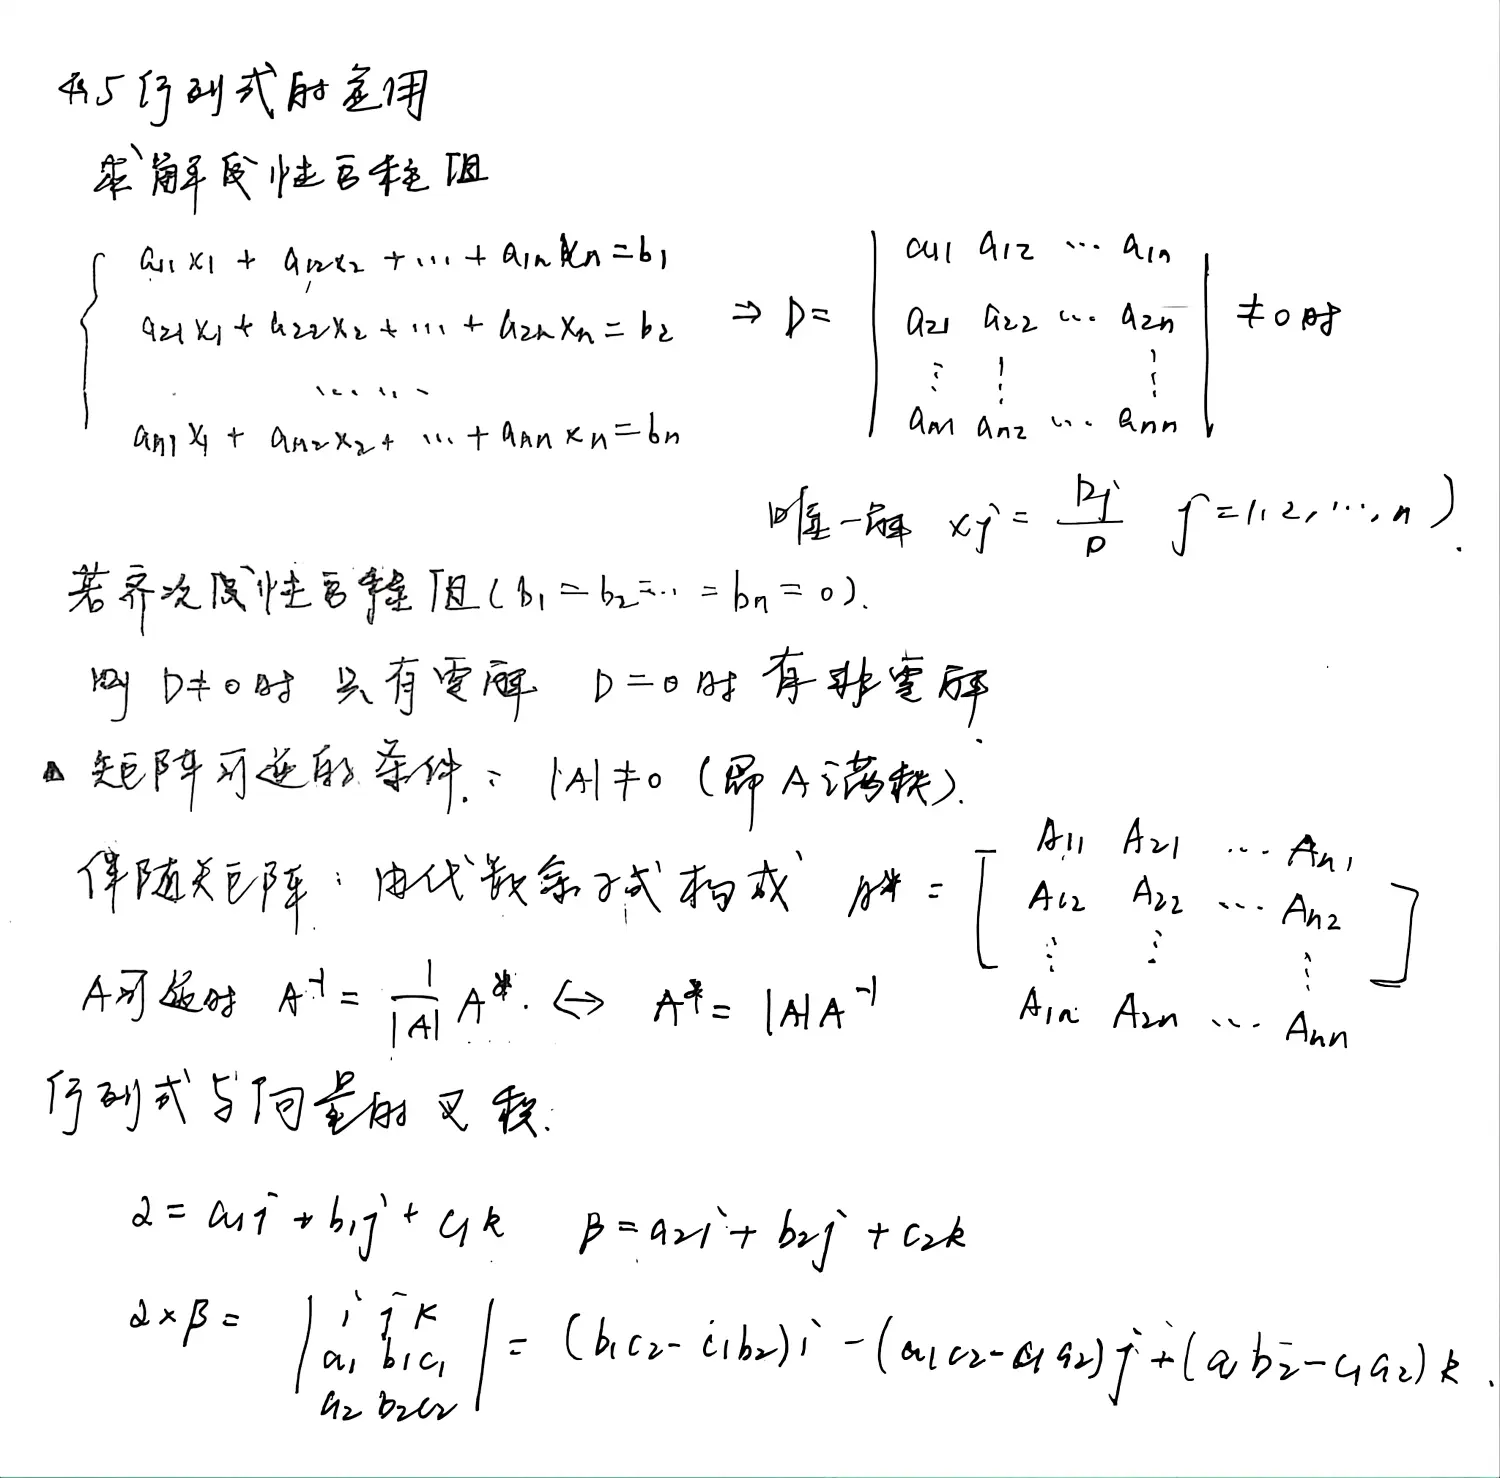 4.5 行列式的应用
求解线性方程组
a11x1 + a12x2 + ... + a1nxn = b1
a21x1 + a22x2 + ... + a2nxn = b2
......
an1x1 + an2x2 + ... + annxn = bn
⇒ D = | a11 a12 ... a1n
a21 a22 ... a2n
⋮ ⋮ ⋮
an1 an2 ... ann | ≠0时
唯一解 xj = Dj/D j=1,2,...,n).
若齐次线性方程组(b1=b2=...=bn=0).
则 D≠0时 只有零解 D=0时 有非零解.
矩阵可逆的条件: |A|≠0 (即A满秩).
伴随矩阵: 由代数余子式构成 A* = [ A11 A21 ... An1
A12 A22 ... An2
⋮ ⋮ ⋮
A1n A2n ... Ann ]
A可逆时 A⁻¹ = 1/|A| A*. ↔ A* = |A|A⁻¹
行列式与向量的叉积:
α = a1i + b1j + c1k β = a2i + b2j + c2k
α×β = | i j k
a1 b1 c1
a2 b2 c2 | = (b1c2 - c1b2)i - (a1c2 - c1a2)j + (a b2 - c1a2)k.